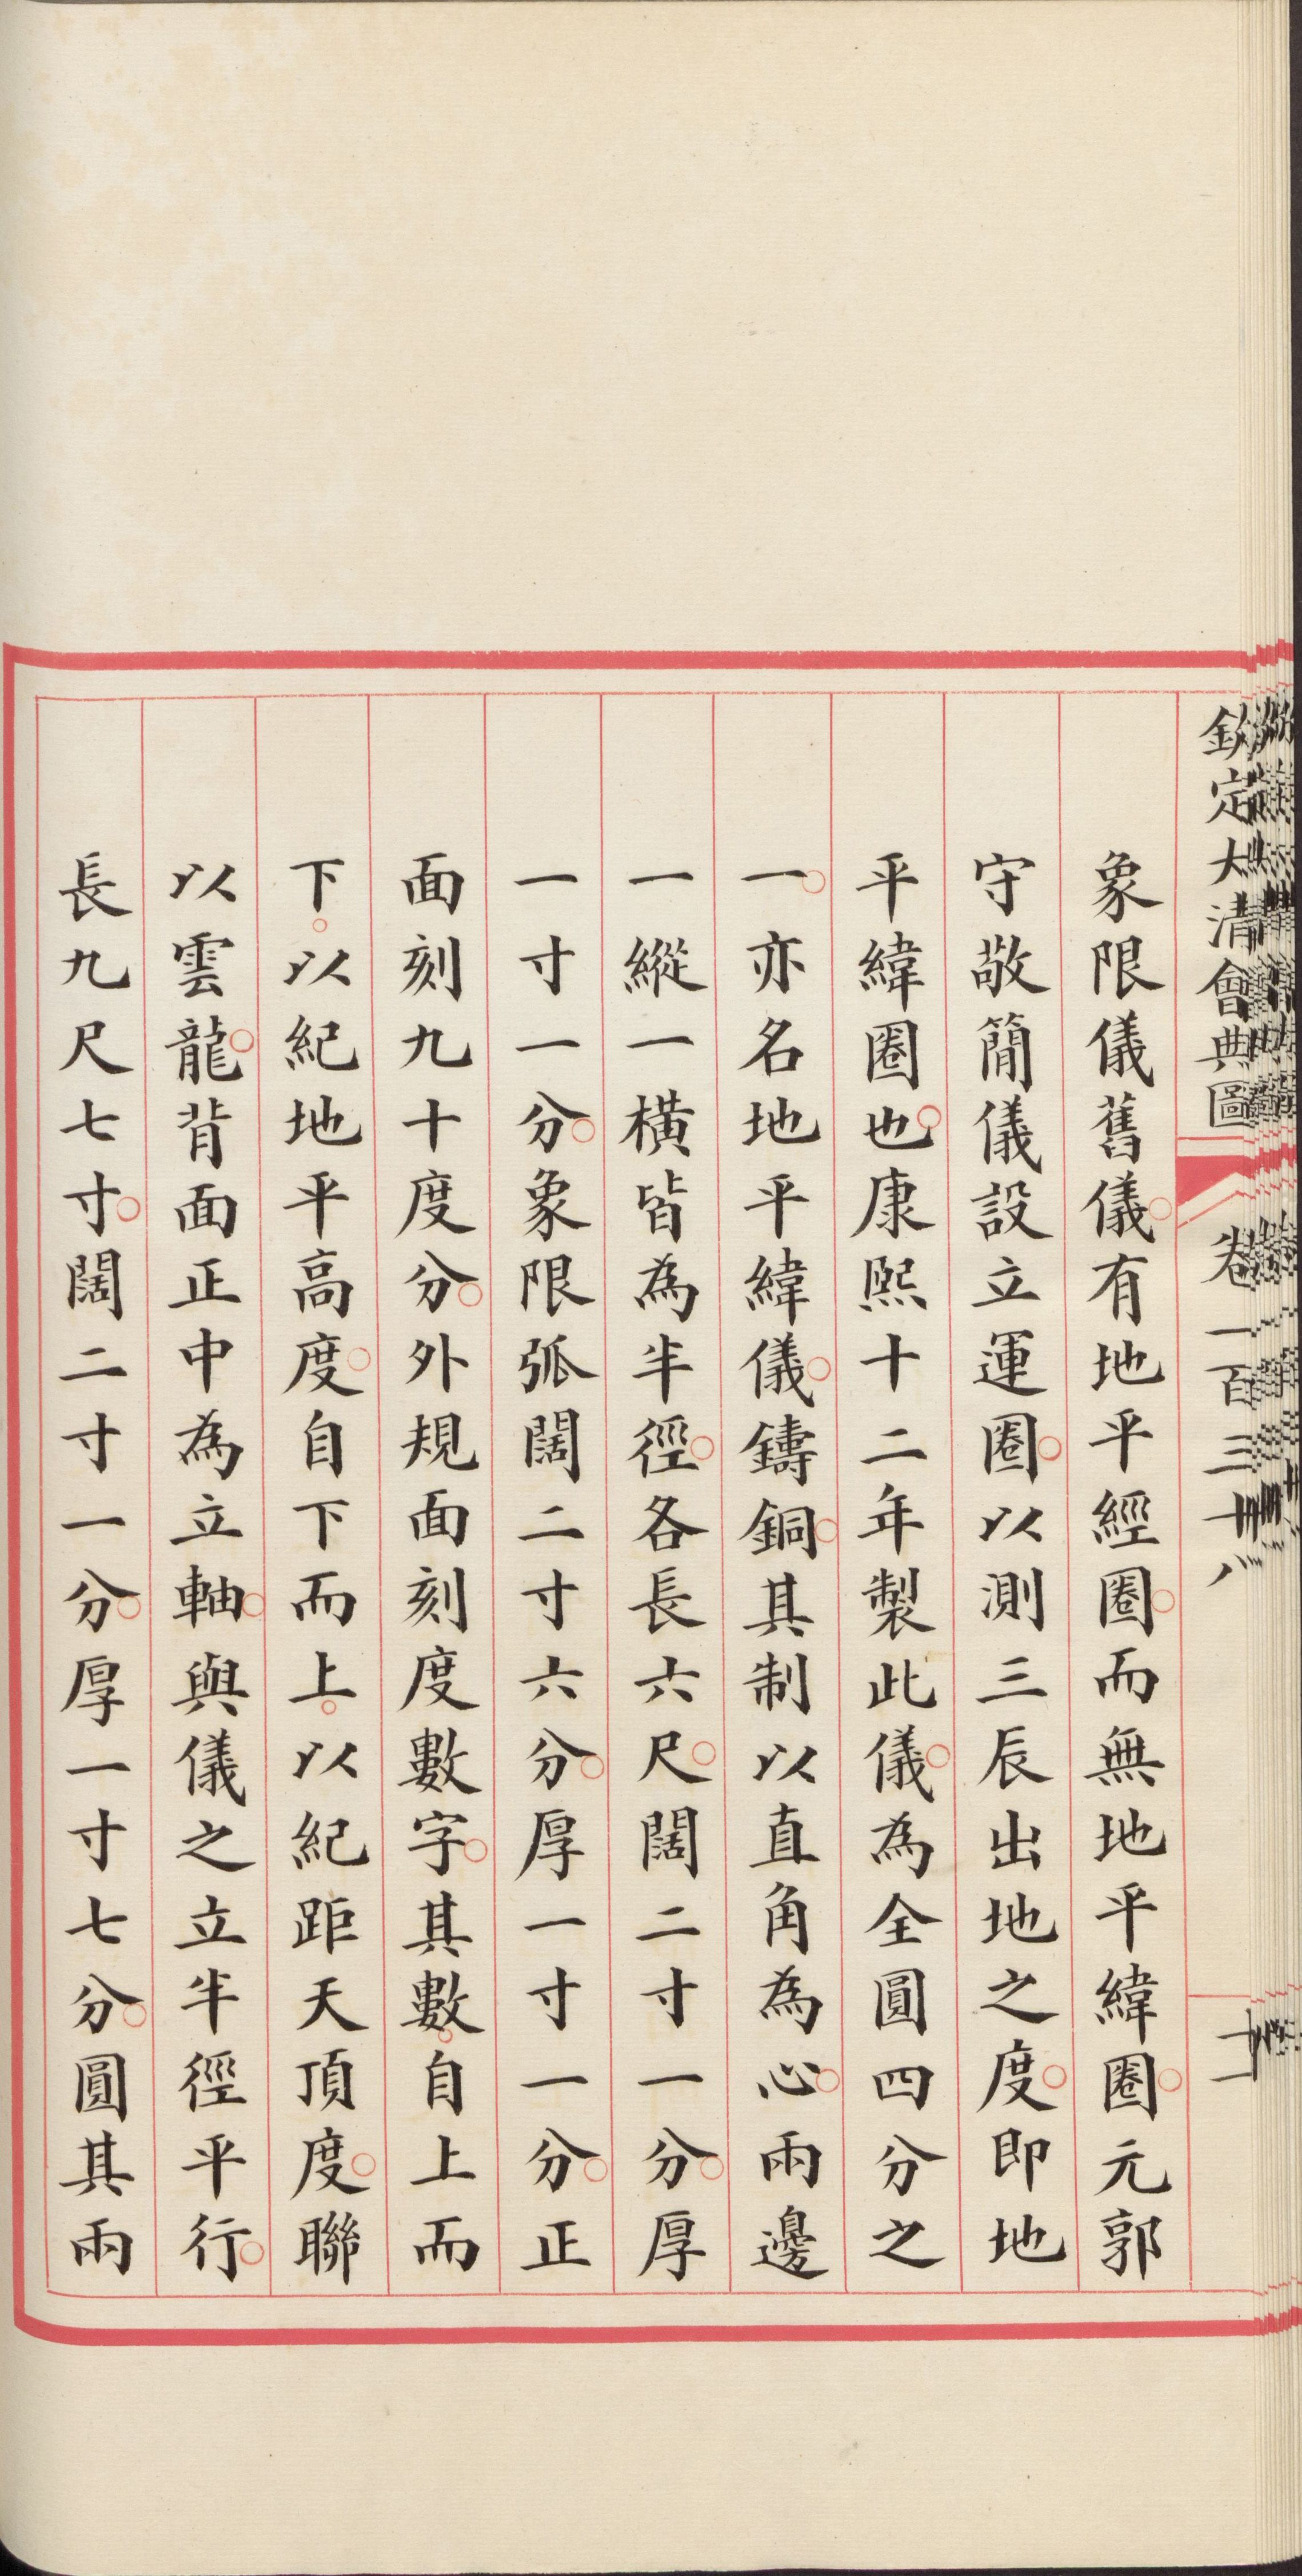 欽定大清會典圖 卷一百三十八 十一
象限儀舊儀有地平經圈而無地平緯圈元郭
守敬簡儀設立運圈以測三辰出地之度即地
平緯圈也康熙十二年製此儀為全圓四分之
一亦名地平緯儀鑄銅其制以直角為心兩邊
一縱一橫皆為半徑各長六尺闊二寸一分厚
一寸一分象限弧闊二寸六分厚一寸一分正
面刻九十度分外規面刻度數字其數自上而
下以紀地平高度自下而上以紀距天頂度聯
以雲龍背面正中為立軸與儀之立半徑平行
長九尺七寸闊二寸一分厚一寸七分圓其兩